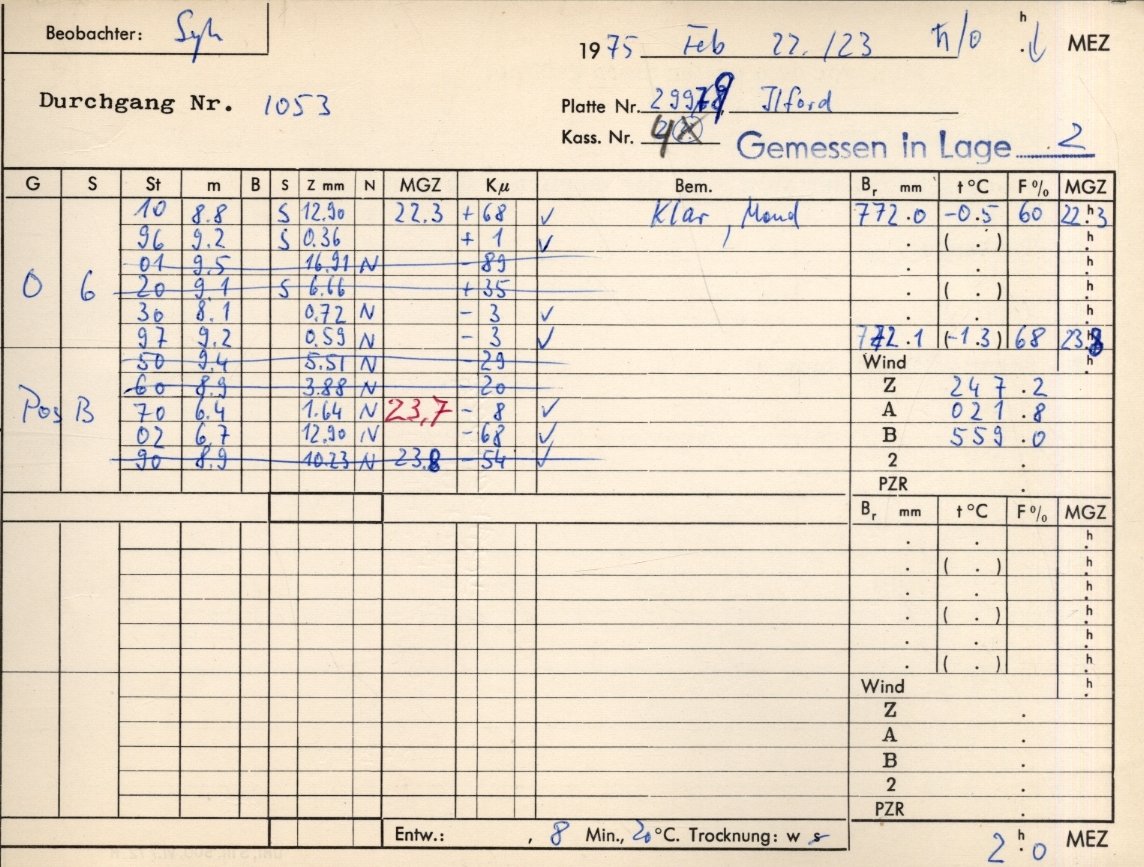 Beobachter: Syh
1975 Feb 22./23 h . MEZ
Durchgang Nr. 1053
Platte Nr. Ilford
Kass. Nr.
Gemessen in Lage 2
G S St m B S Z mm N MGZ Kμ Bem. Br mm t °C F % MGZ
10 8.8 S 12.90 22.3 + 68 ✓ Klar, Mond 772.0 -0.5 60 22.h3
96 9.2 S 0.36 + 1 ✓ . ( . ) h
01 9.5 16.91 N - 89 . . h
0 6 20 9.1 S 6.66 + 35 . ( . ) h
30 8.1 0.72 N - 3 ✓ . . h
97 9.2 0.59 N - 3 ✓ 772.1 (-1.3) 68 23.h8
50 9.4 5.51 N - 29 Wind h
60 8.9 3.88 N - 20 Z 247.2
Pos B 70 6.4 1.64 N 23,7 - 8 ✓ A 021.8
02 6.7 12.90 N - 68 ✓ B 559.0
90 8.9 10.23 N 23.8 - 54 ✓ 2 .
PZR .
Br mm t °C F % MGZ
. . h
. ( . ) h
. . h
. ( . ) h
. . h
. ( . ) h
Wind h
Z .
A .
B .
2 .
PZR .
Entw.: , 8 Min., 20 °C. Trocknung: w s
2 h . 0 MEZ